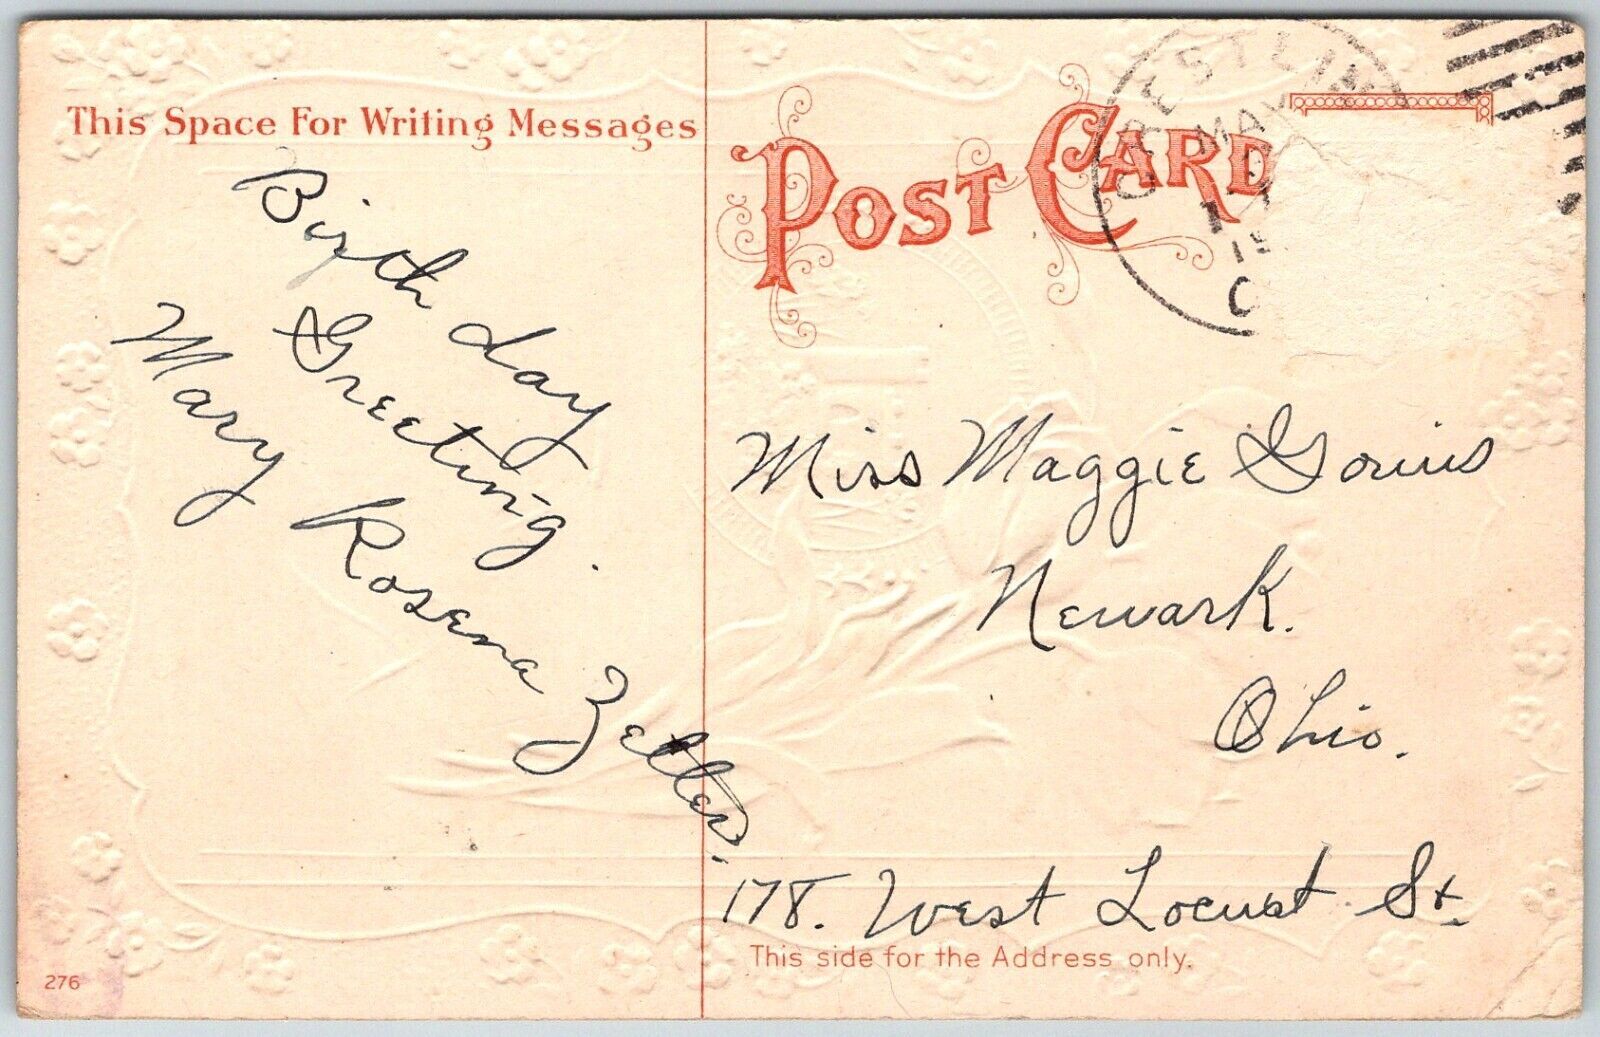 This Space For Writing Messages
Birth day
Greeting.
Mary Rosena Zetter.
POST CARD
CRESTLIN
MAY
Miss Maggie
Newark.
Ohio.
178. West Locust St.
This side for the Address only.
276